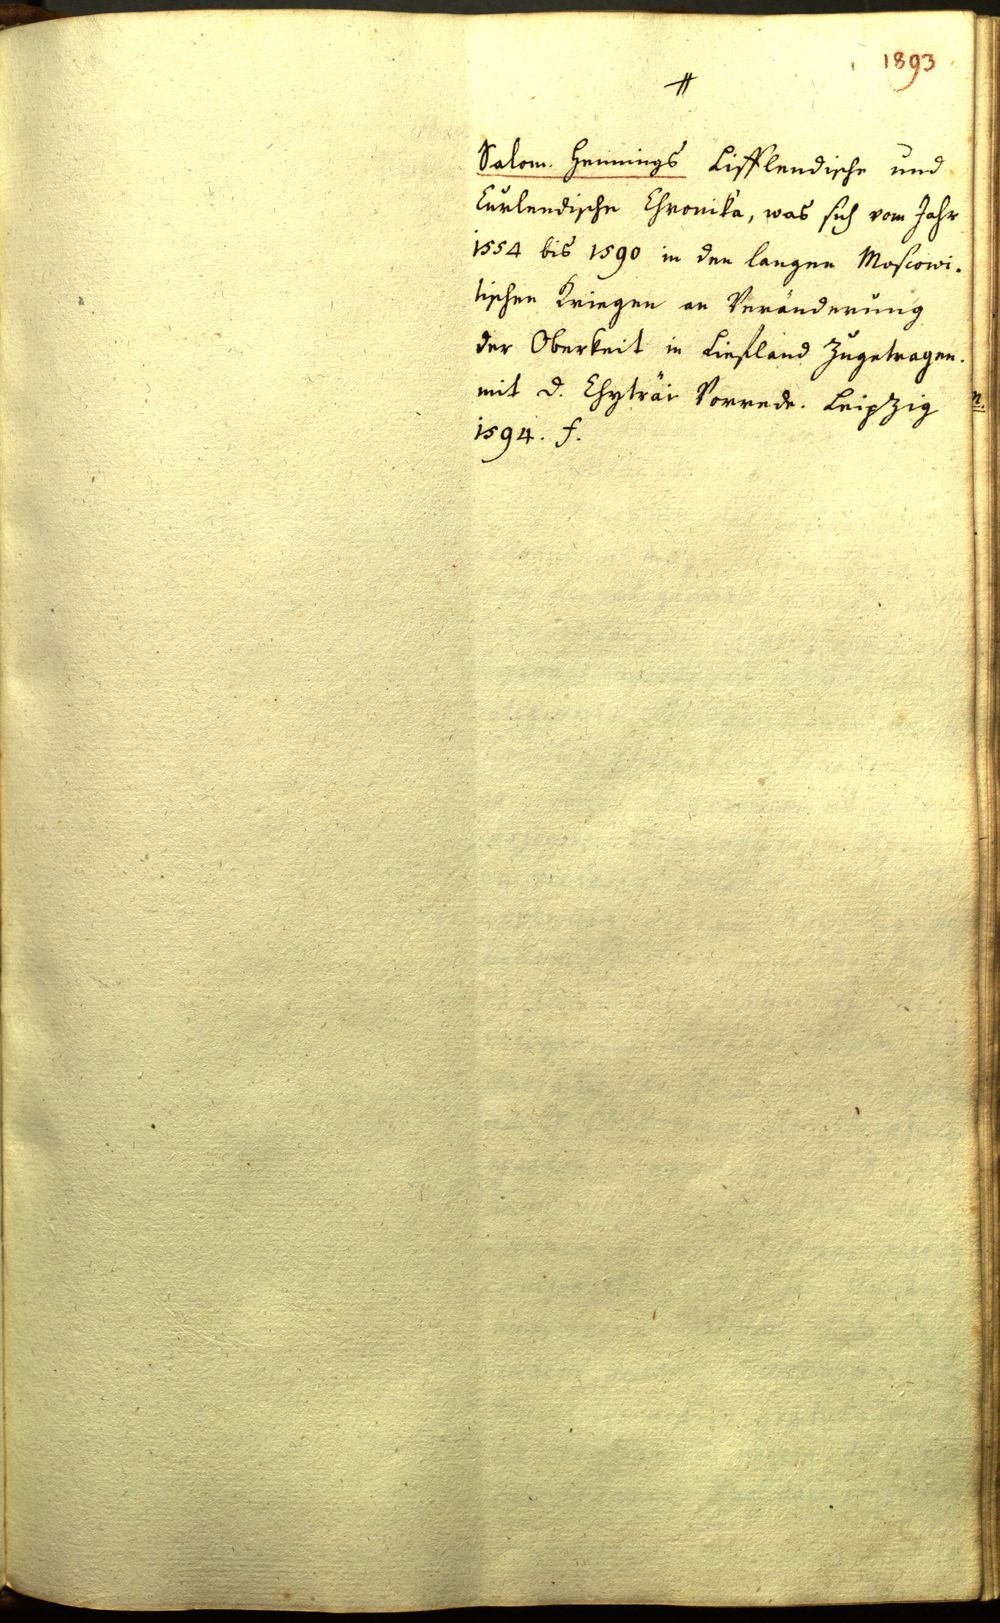 1893
Salom. Hennings Liffländische und
Curländische Chronika, was sich vom Jahr
1554 bis 1590 in den langen Moscowi-
tischen Kriegen an Veränderung
der Oberkeit in Liefland Zugetragen.
mit D. Chyträi Vorrede. Leipzig
1594. f.